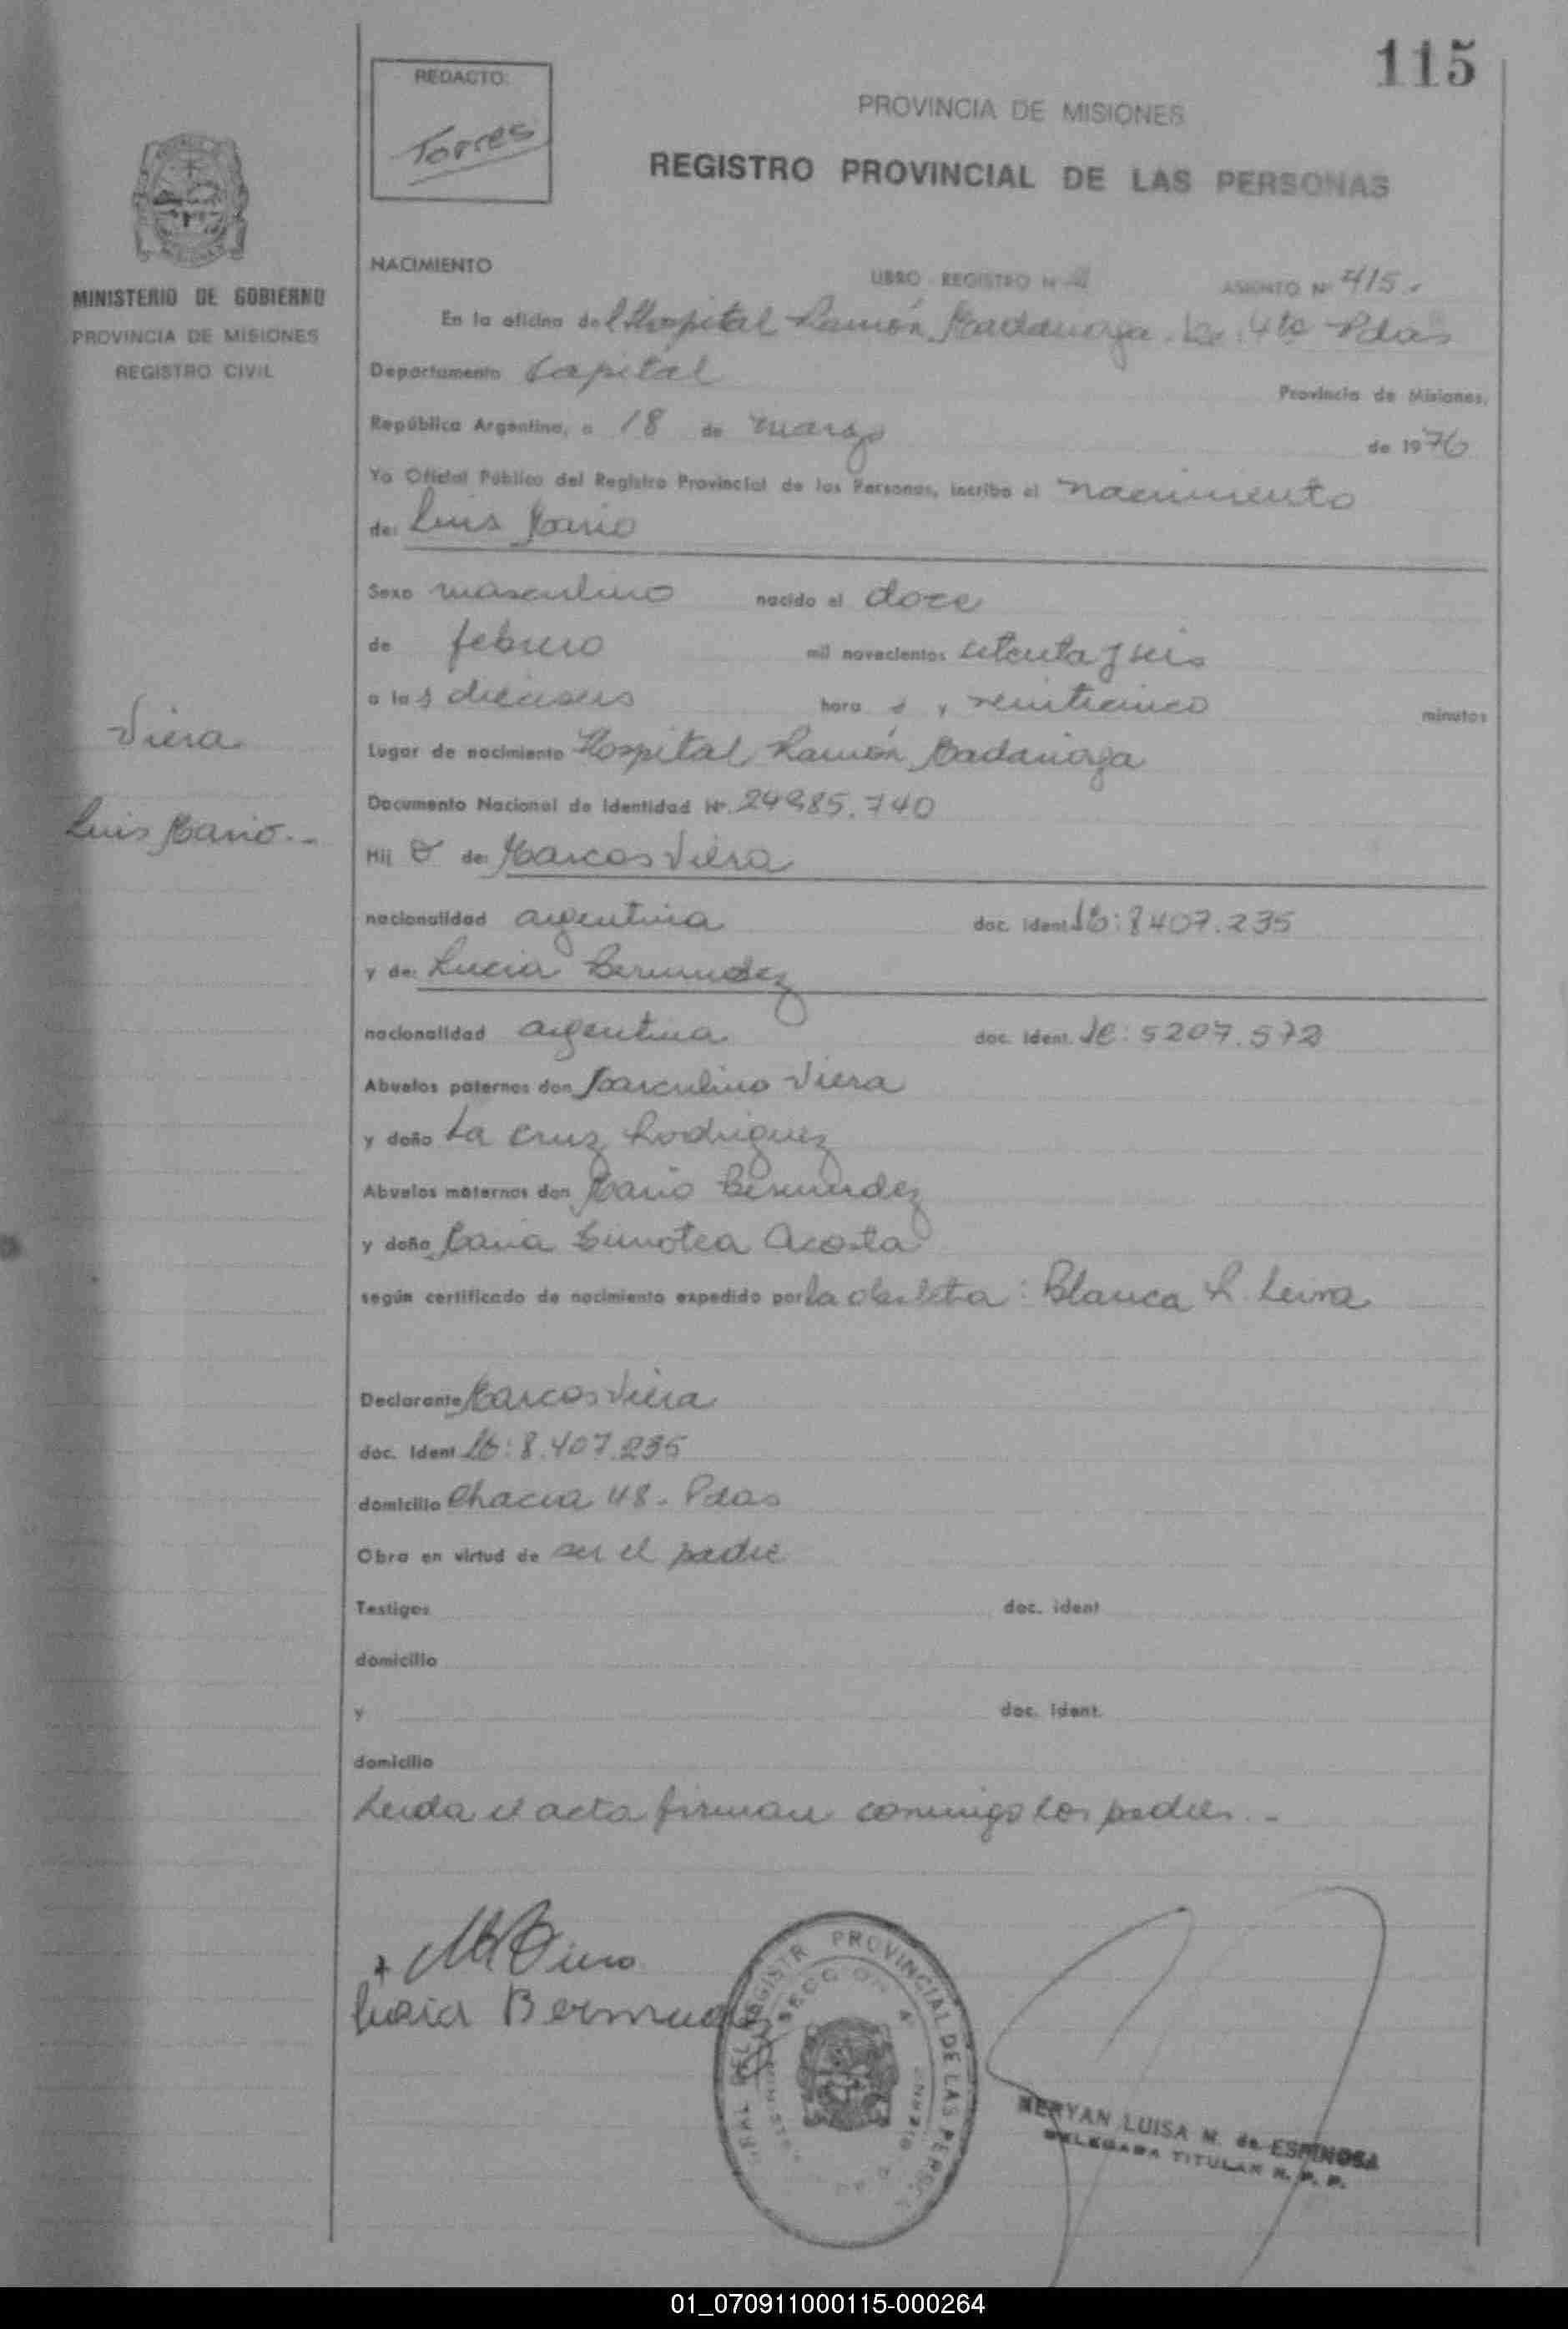 115
REDACTO:
Torres
PROVINCIA DE MISIONES
REGISTRO PROVINCIAL DE LAS PERSONAS
MINISTERIO DE GOBIERNO
PROVINCIA DE MISIONES
REGISTRO CIVIL
NACIMIENTO LIBRO REGISTRO Nº ASIENTO Nº 415.
En la oficina del Hospital Ramón Madariaga. 4ta Pdas
Departamento Capital Provincia de Misiones,
República Argentina, a 18 de marzo de 1976
Yo Oficial Público del Registro Provincial de las Personas, inscribo el nacimiento
de: Luis Mario
Sexo masculino nacido el doce
de febrero mil novecientos setenta y seis
a las dieciseis hora s y veinticinco minutos
Viera
Lugar de nacimiento Hospital Ramón Madariaga
Documento Nacional de Identidad Nº 24985.740
Luis Mario.-
Hij o de: Marcos Viera
nacionalidad argentina doc. ident. 8407.235
y de: Lucia Bermudez
nacionalidad argentina doc. ident. 5207.572
Abuelos paternos don Marculino Viera
y doña La Cruz Rodriguez
Abuelos maternos don Mario Bermudez
y doña Maria Timotea Acosta
según certificado de nacimiento expedido por la obstetra: Blanca R. Leiva
Declarante Marcos Viera
doc. Ident 8.407.235
domicilio Chacra 48. Pdas
Obra en virtud de ser el padre
Testigos doc. ident
domicilio
y doc. ident.
domicilio
Leida el acta firman conmigo los padres.-
Lucia Bermudez
REGISTR PROVINCIAL DE LAS PERSO
SECCION 4
MERYAN LUISA M. de ESPINOSA
DELEGADA TITULAR R. P. P.
01_070911000115-000264